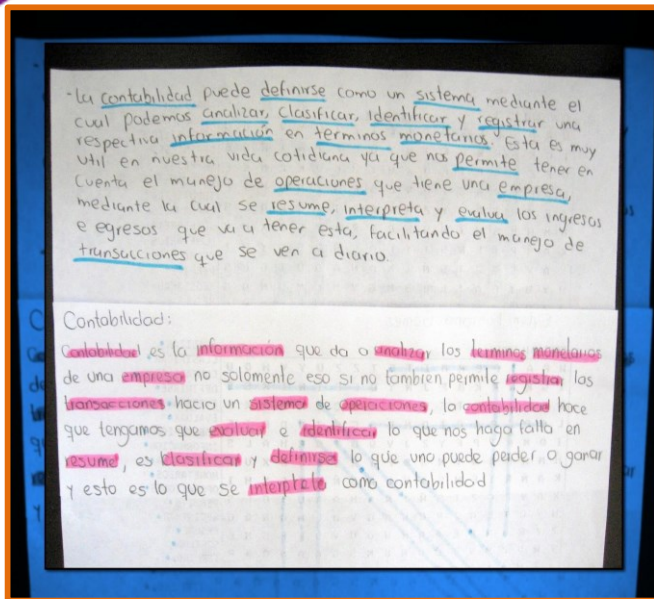 · la contabilidad puede definirse como un sistema mediante el
cual podemos analizar, clasificar, identificar y registrar una
respectiva información en terminos monetarios. Esta es muy
util en nuestra vida cotidiana ya que nos permite tener en
cuenta el manejo de operaciones que tiene una empresa,
mediante la cual se resume, interpreta y evalua los ingresos
e egresos que va a tener esta, facilitando el manejo de
transacciones que se ven a diario.
Contabilidad:
Contabilidad es la información que da o analizar los terminos monetarios
de una empresa no solomente eso si no tambien permite registrar los
transacciones hacia un sistema de operaciones, la contabilidad hace
que tengamos que evaluar e identificar lo que nos haga falta en
resume, es klasificar y definirse lo que uno puede perder o ganar
y esto es lo que se interprete como contabilidad